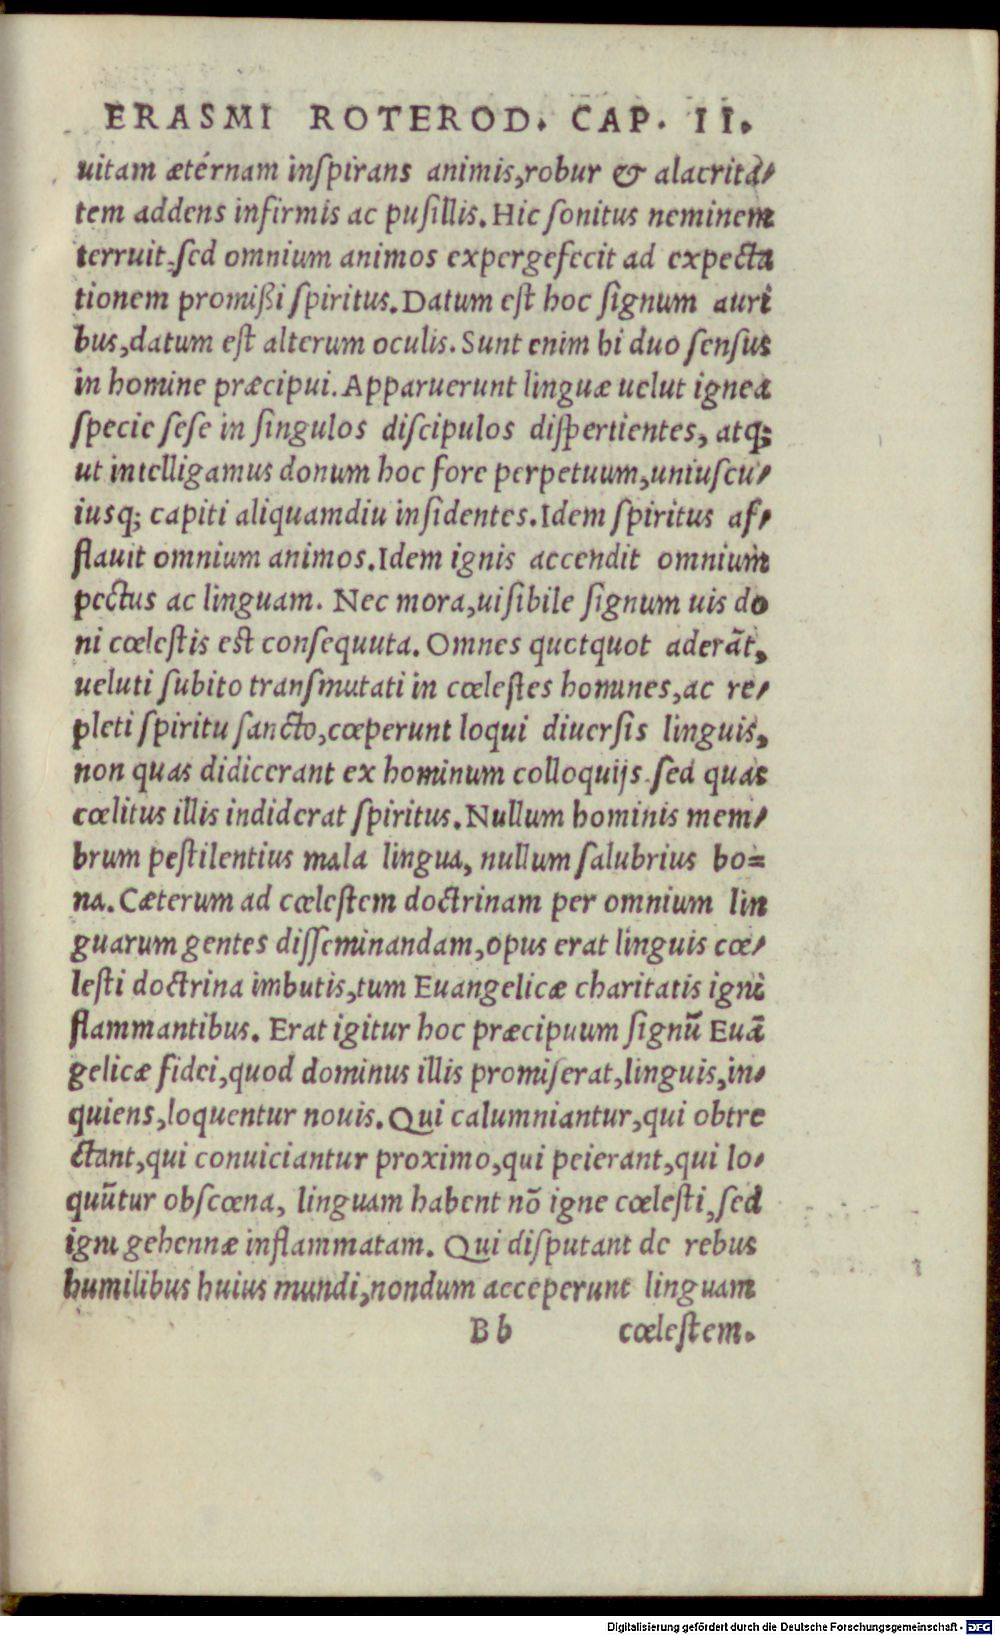 ERASMI ROTEROD. CAP. II.
uitam ætérnam inſpirans animis,robur & alacrita/
tem addens infirmis ac puſillis. Hic ſonitus neminem
terruit,ſed omnium animos expergefecit ad expecta
tionem promiſsi ſpiritus. Datum eſt hoc ſignum auri
bus,datum eſt alterum oculis. Sunt enim hi duo ſenſus
in homine præcipui. Apparuerunt linguæ uelut ignea
ſpecie ſeſe in ſingulos diſcipulos diſpertientes, atq;
ut intelligamus donum hoc fore perpetuum,uniuſcu/
iusq; capiti aliquamdiu inſidentes. Idem ſpiritus af/
flauit omnium animos. Idem ignis accendit omnium
pectus ac linguam. Nec mora,uiſibile ſignum uis do
ni cœleſtis eſt conſequuta. Omnes quotquot aderãt,
ueluti ſubito tranſmutati in cœleſtes homines,ac re/
pleti ſpiritu ſancto,cœperunt loqui diuerſis linguis,
non quas didicerant ex hominum colloquijs,ſed quas
cœlitus illis indiderat ſpiritus. Nullum hominis mem/
brum peſtilentius mala lingua, nullum ſalubrius bo=
na. Cæterum ad cœleſtem doctrinam per omnium lin
guarum gentes diſſeminandam,opus erat linguis cœ/
leſti doctrina imbutis,tum Euangelicæ charitatis igni
flammantibus. Erat igitur hoc præcipuum ſignũ Euã
gelicæ fidei,quod dominus illis promiſerat,linguis,in/
quiens,loquentur nouis. Qui calumniantur,qui obtre
ctant,qui conuiciantur proximo,qui peierant,qui lo/
quũtur obſcœna, linguam habent nõ igne cœleſti,ſed
igni gehennæ inflammatam. Qui diſputant de rebus
humilibus huius mundi,nondum acceperunt linguam
B b cœleſtem.
Digitalisierung gefördert durch die Deutsche Forschungsgemeinschaft - DFG